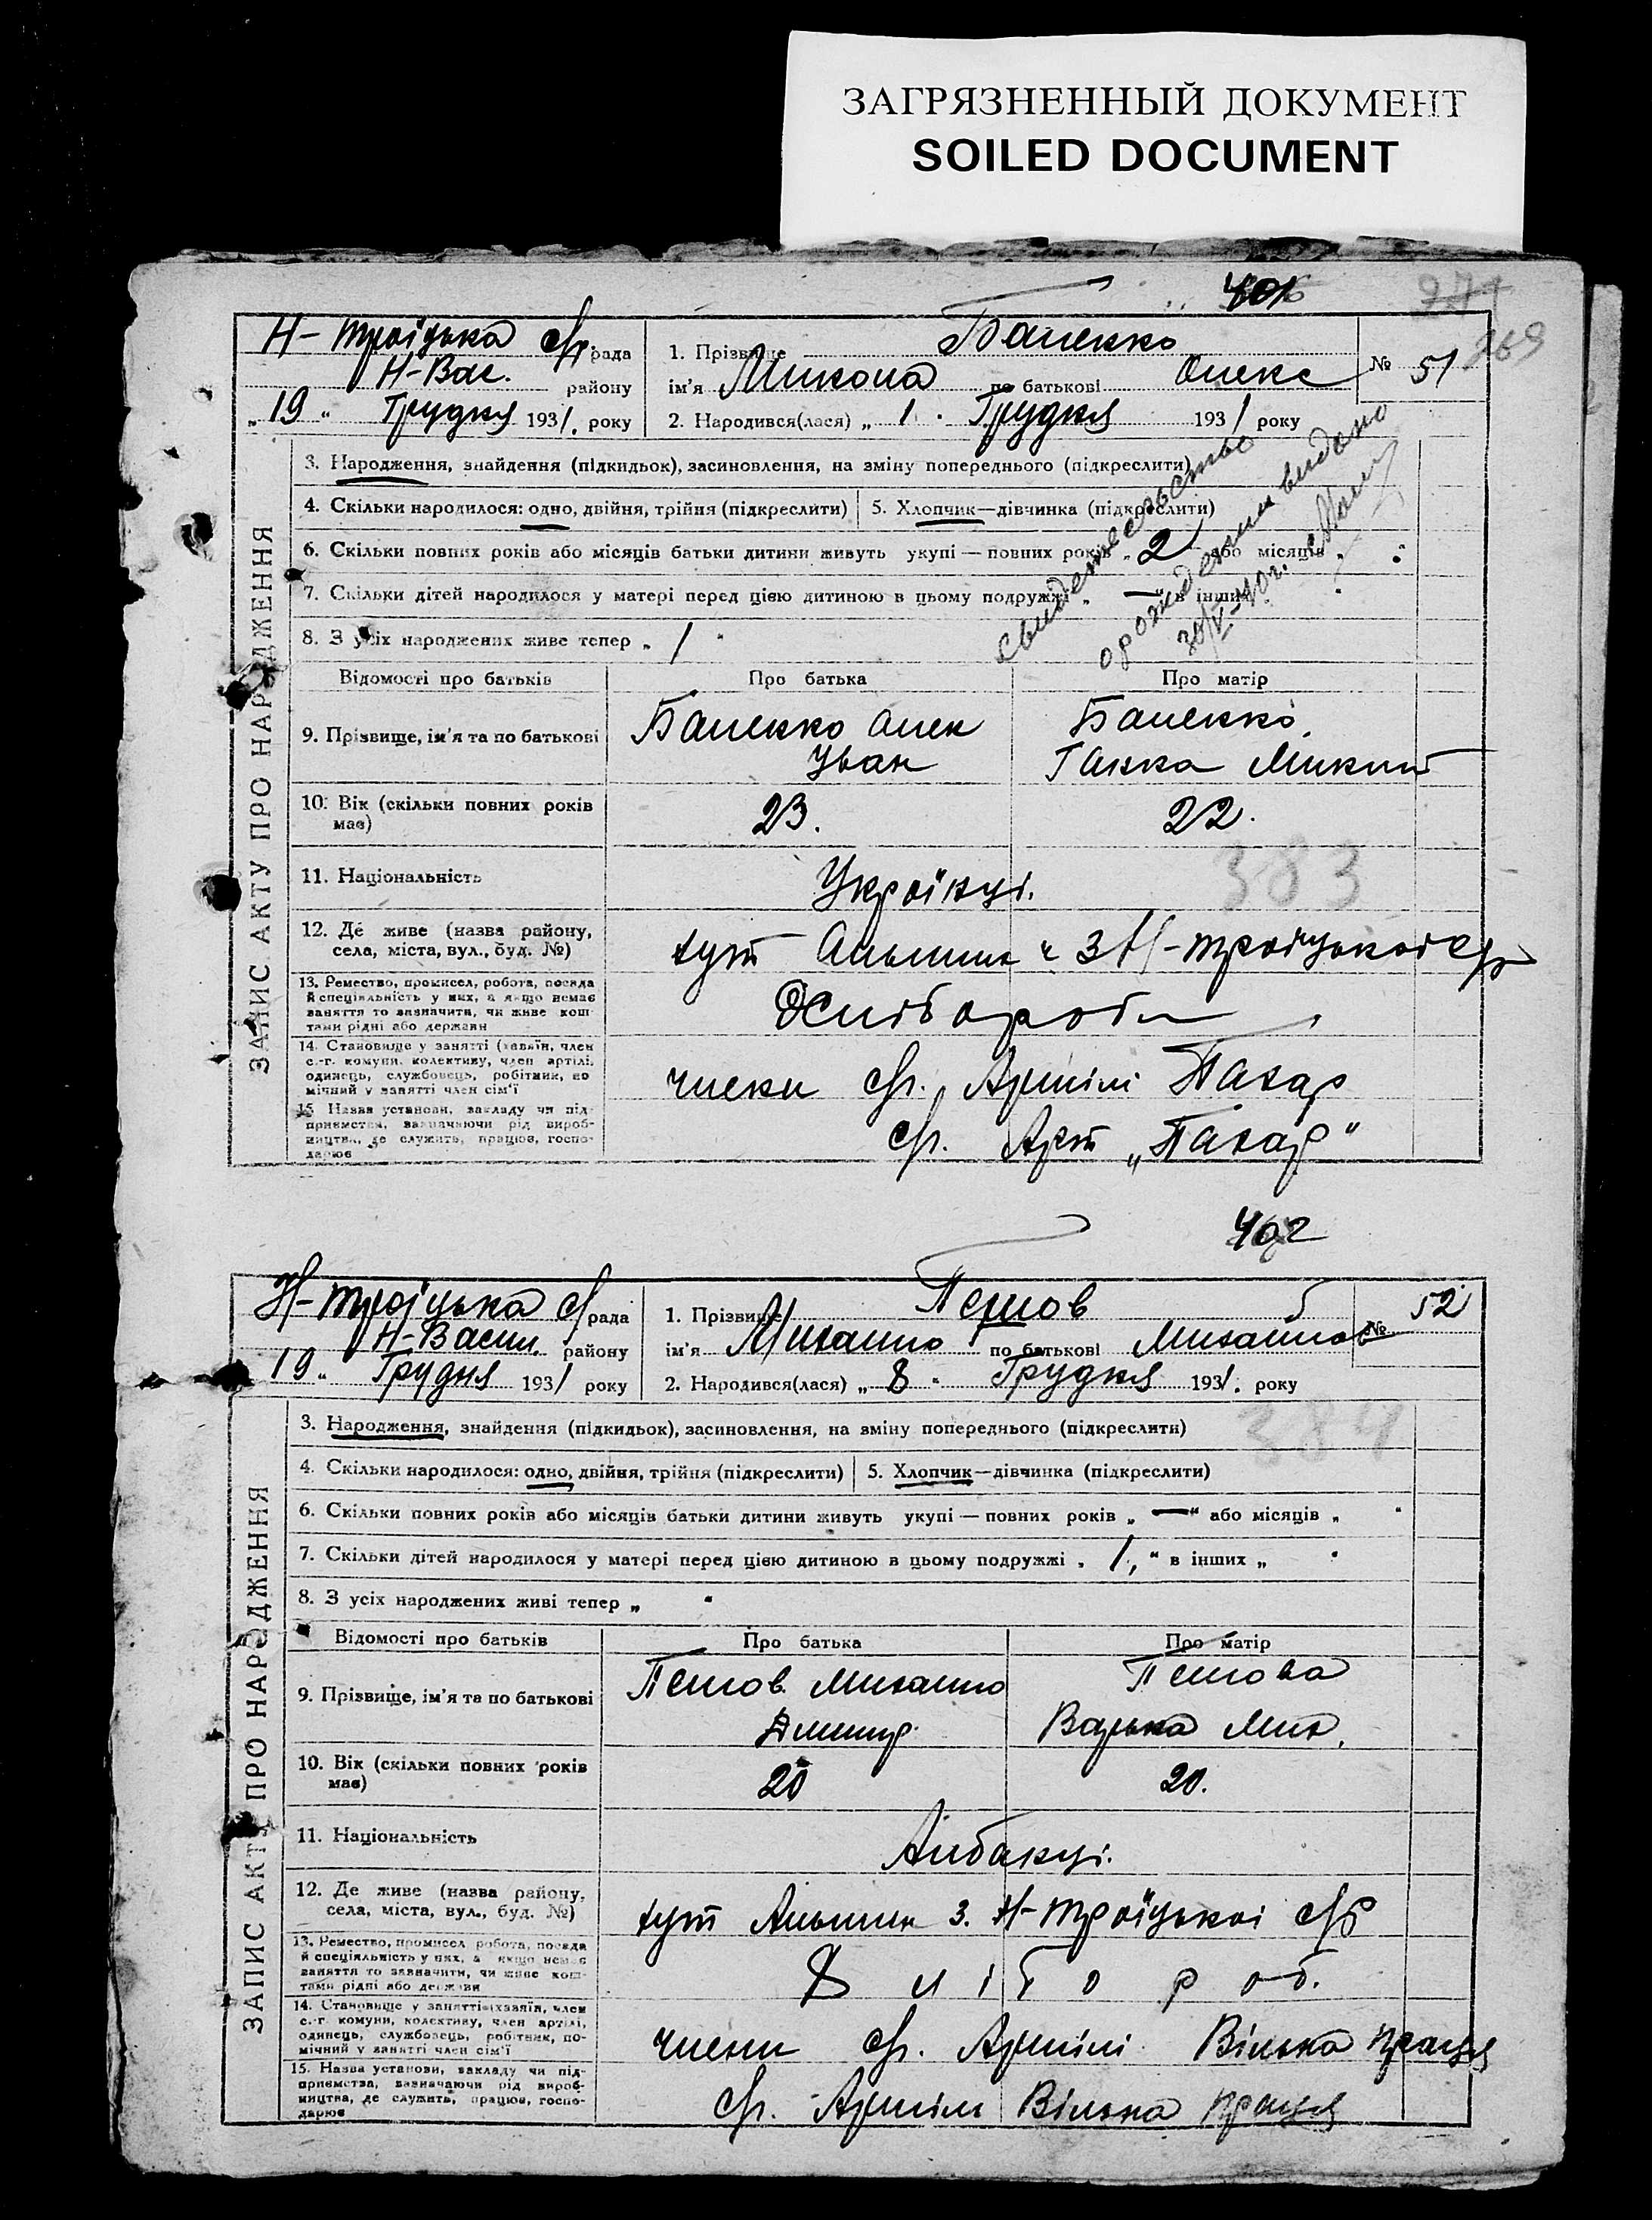 ЗАГРЯЗНЕННЫЙ ДОКУМЕНТ
SOILED DOCUMENT
401
269
Н-Троїцька с/р. рада
Н-Вас. району
„19“ Грудня 1931. року
1. Прізвище Баленко
ім'я Микола по батькові Олекс
№ 51
2. Народився(лася) „1“ Грудня 1931 року
ЗАПИС АКТУ ПРО НАРОДЖЕННЯ
3. Народження, знайдення (підкидьок), засиновлення, на зміну попереднього (підкреслити)
4. Скільки народилося: одно, двійня, трійня (підкреслити)
5. Хлопчик—дівчинка (підкреслити)
6. Скільки повних років або місяців батьки дитини живуть укупі — повних років „2“ або місяців „ “
7. Скільки дітей народилося у матері перед цією дитиною в цьому подружжі „—“ в інших
8. З усіх народжених живе тепер „1“
свидетельство
о рождении видано
30/V-40г.
Відомості про батьків
Про батька
Про матір
9. Прізвище, ім'я та по батькові
Баленко Олек
Іван
Баленко
Ганна Микит
10. Вік (скільки повних років має)
23.
22.
383
11. Національність
Українці.
12. Де живе (назва району, села, міста, вул., буд. №)
хут з Н-Троїцької с/р
13. Ремество, промисел, робота, посада й спеціяльність у них, а якщо немає заняття то зазначити, чи живе коштами рідні або держави
Хлібороби
14. Становище у занятті (хазяїн, член с.-г. комуни, колективу, член артілі, одинець, службовець, робітник, помічний у занятті член сім'ї
члени с/г. Артілі Пахар
15. Назва установи, закладу чи підприємства, зазначаючи рід виробництва, де служить, працює, господарює
с/г. Арт „Пахар“
402
Н-Троїцька с/р рада
Н-Васил. району
19“ Грудня 1931 року
1. Прізвище Пейов
ім'я Михайло по батькові Михайлов
№ 52
2. Народився(лася) „8“ Грудня 1931. року
384
ЗАПИС АКТУ ПРО НАРОДЖЕННЯ
3. Народження, знайдення (підкидьок), засиновлення, на зміну попереднього (підкреслити)
4. Скільки народилося: одно, двійня, трійня (підкреслити)
5. Хлопчик—дівчинка (підкреслити)
6. Скільки повних років або місяців батьки дитини живуть укупі — повних років „—“ або місяців „ “
7. Скільки дітей народилося у матері перед цією дитиною в цьому подружжі „1,“ в інших „ “
8. З усіх народжених живі тепер „ “
Відомості про батьків
Про батька
Про матір
9. Прізвище, ім'я та по батькові
Михайло
Дмитр.
Варька Мих.
10. Вік (скільки повних років має)
20
20.
11. Національність
Албанці.
12. Де живе (назва району, села, міста, вул., буд. №)
хут з. Н-Троїцької с/р
13. Ремество, промисел, робота, посада й спеціяльність у них, а якщо немає заняття то зазначити, чи живе коштами рідні або держави
Хлібороб.
14. Становище у занятті (хазяїн, член с.-г. комуни, колективу, член артілі, одинець, службовець, робітник, помічний у занятті член сім'ї
члени с/г. Артілі Вільна праця
15. Назва установи, закладу чи підприємства, зазначаючи рід виробництва, де служить, працює, господарює
с/г. Артіль Вільна праця